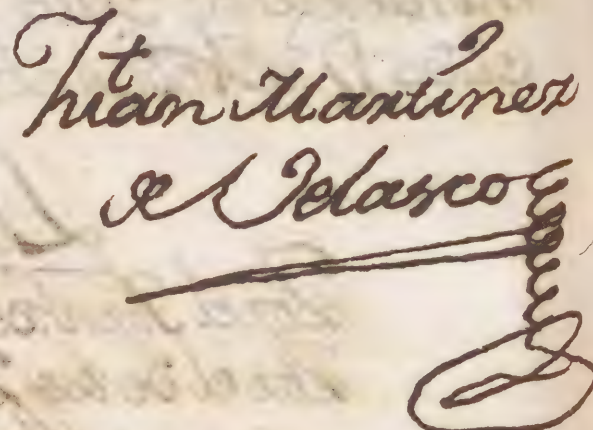 Juan Martinez
de Velasco